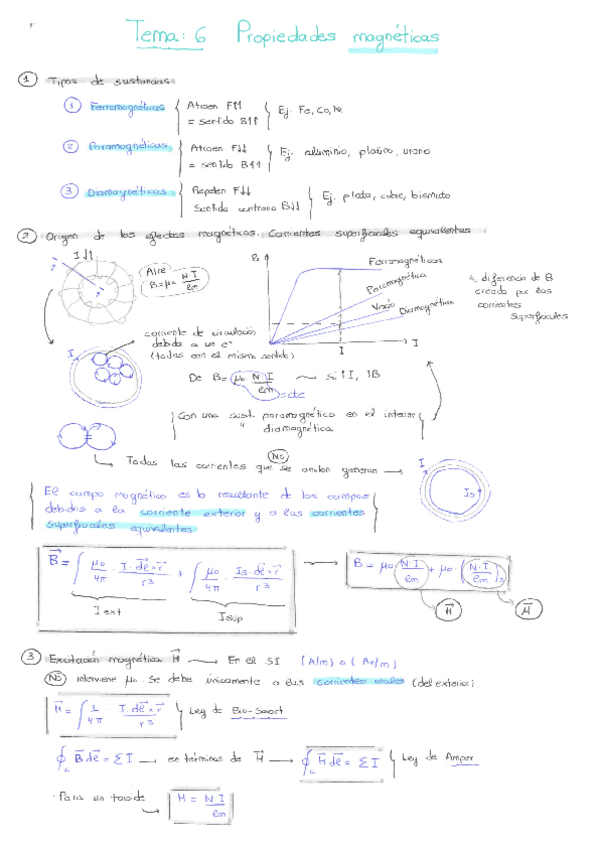 Tema: 6 Propiedades magnéticas
1 Tipos de sustancias
1 Ferromagnéticas { Atraen F↑↑ = sentido B↑↑ { Ej. Fe, Co, Ni
2 Paramagnéticas { Atraen F↓↓ = sentido B↑↑ { Ej. aluminio, platino, uranio
3 Diamagnéticas { Repelen F↓↓ Sentido contrario B↓↓ { Ej. plata, cobre, bismuto
2 Origen de los efectos magnéticos. Corrientes superficiales equivalentes
I↓↓
Aire
B=μ₀ N I / lm
B
Ferromagnéticos
Paramagnética
Vacío
Diamagnética
I
I
diferencia de B
creada por las
corrientes
superficiales
corriente de circulación
debida a un e⁻
(todas con el mismo sentido)
I
De B= μ₀ N I / lm = cte ⟿ si ↑I, ↑B
Con una sust. paramagnética en el interior
" diamagnética
Todas las corrientes que NO se anulan generan →
I
Is
El campo magnético es la resultante de los campos
debidos a la corriente exterior y a las corrientes
superficiales equivalentes
B⃗ = ∫ μ₀/4π · I·dl⃗×r⃗ / r³ + ∫ μ₀/4π · Is·dl⃗×r⃗ / r³
I ext
I sup
B = μ₀ N·I/lm + μ₀ · (N·I/lm)s
H⃗
M⃗
3 Excitación magnética H⃗ ⟶ En el SI (A/m) o (Av/m)
NO interviene μ₀. Se debe únicamente a las corrientes reales (del exterior)
H⃗ = ∫ 1/4π · I·dl⃗×r⃗ / r³ { Ley de Bio-Savart
∮c B⃗ dl⃗ = ΣI ⟶ en términos de H⃗ ⟶ ∮c H⃗ dl⃗ = ΣI { Ley de Amper
· Para un toroide ⟶ H = N I / lm